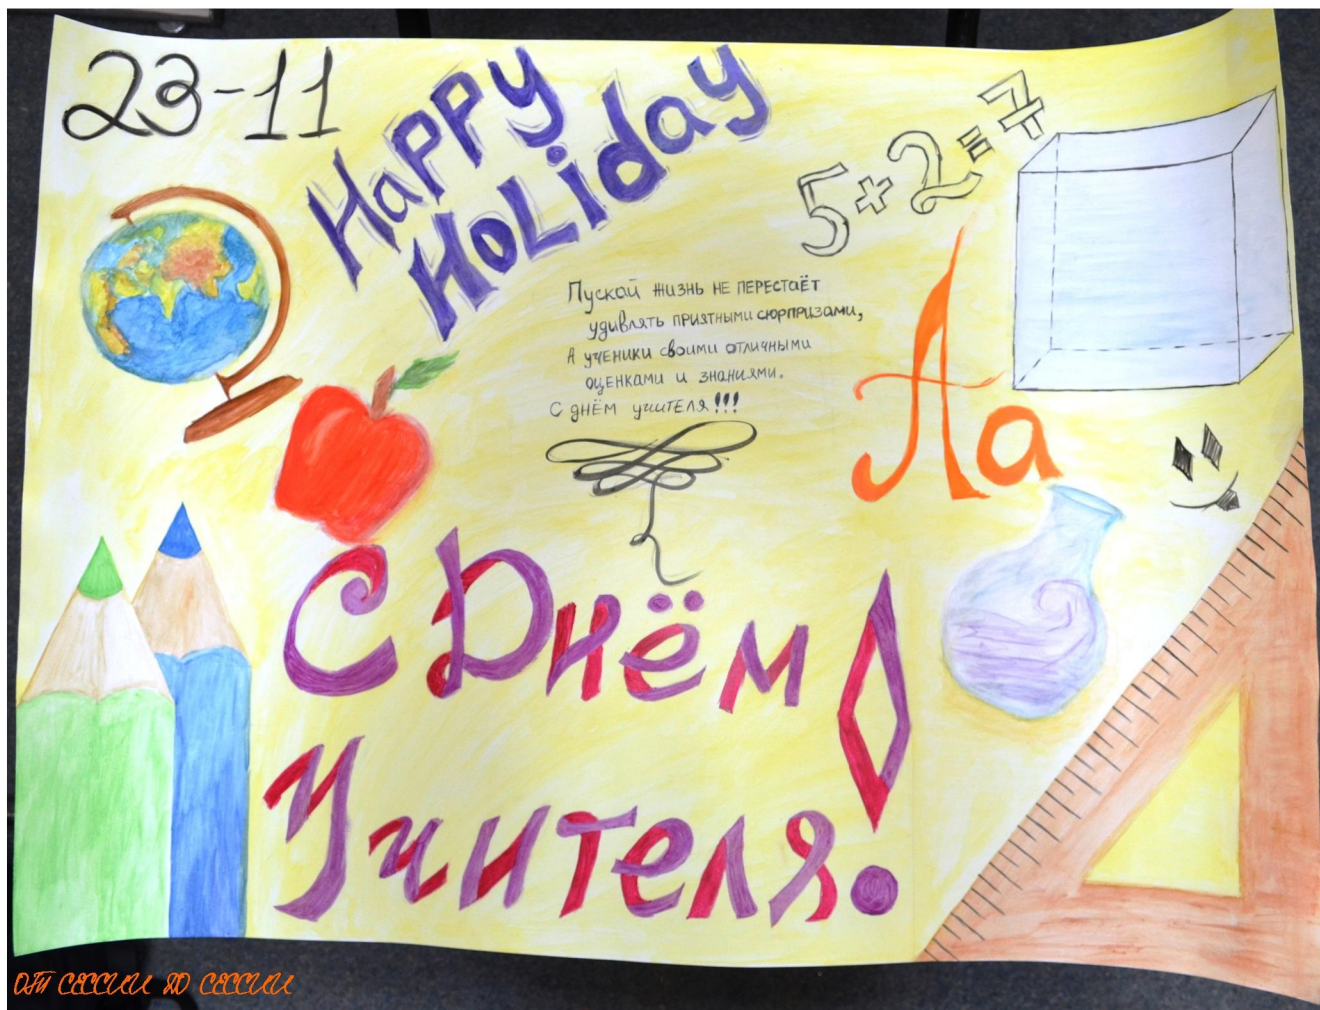 23-11
Happy
Holiday
5+2=7
Пускай жизнь не перестаёт
удивлять приятными сюрпризами,
А ученики своими отличными
оценками и знаниями.
С днём учителя!!!
Аа
С Днём
Учителя!
ОТ СЕССИИ ДО СЕССИИ